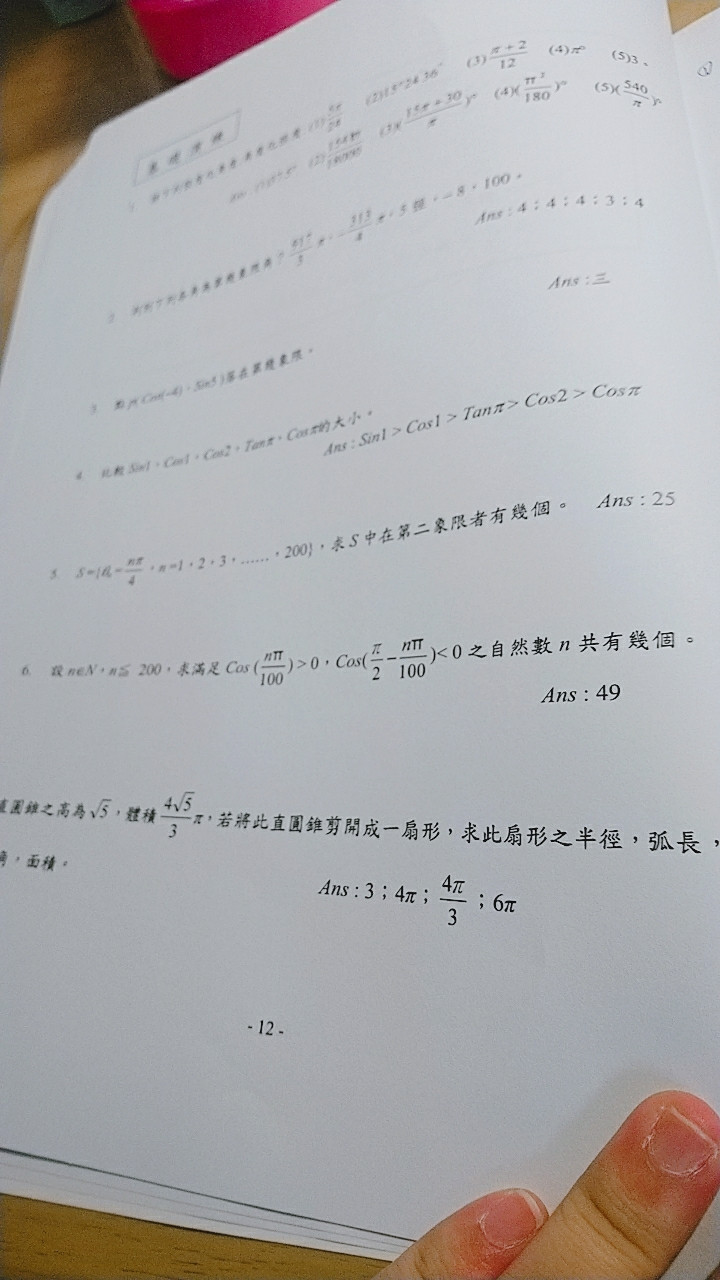 基礎演練
(2)15°24′36″ (3)\frac{π+2}{12} (4)π° (5)3。
(3)(\frac{15π+30}{π})° (4)(\frac{π²}{180})° (5)(\frac{540}{π})°
π,5弳,-8,100。
Ans : 4;4;4;3;4
Ans : 三
3. 點P(Cos(-4),Sin5)落在第幾象限。
4. 比較 Sin1,Cos1,Cos2,Tanπ,Cosπ的大小。
Ans : Sin1 > Cos1 > Tanπ > Cos2 > Cosπ
5. S={θ|θ=\frac{nπ}{4},n=1,2,3,……,200},求 S 中在第二象限者有幾個。 Ans : 25
6. 設 n∈N,n≦ 200,求滿足 Cos (\frac{nπ}{100})>0,Cos(\frac{π}{2}-\frac{nπ}{100})<0 之自然數 n 共有幾個。
Ans : 49
直圓錐之高為√5,體積\frac{4√5}{3}π,若將此直圓錐剪開成一扇形,求此扇形之半徑,弧長,
角,面積。
Ans : 3;4π;\frac{4π}{3};6π
- 12 -